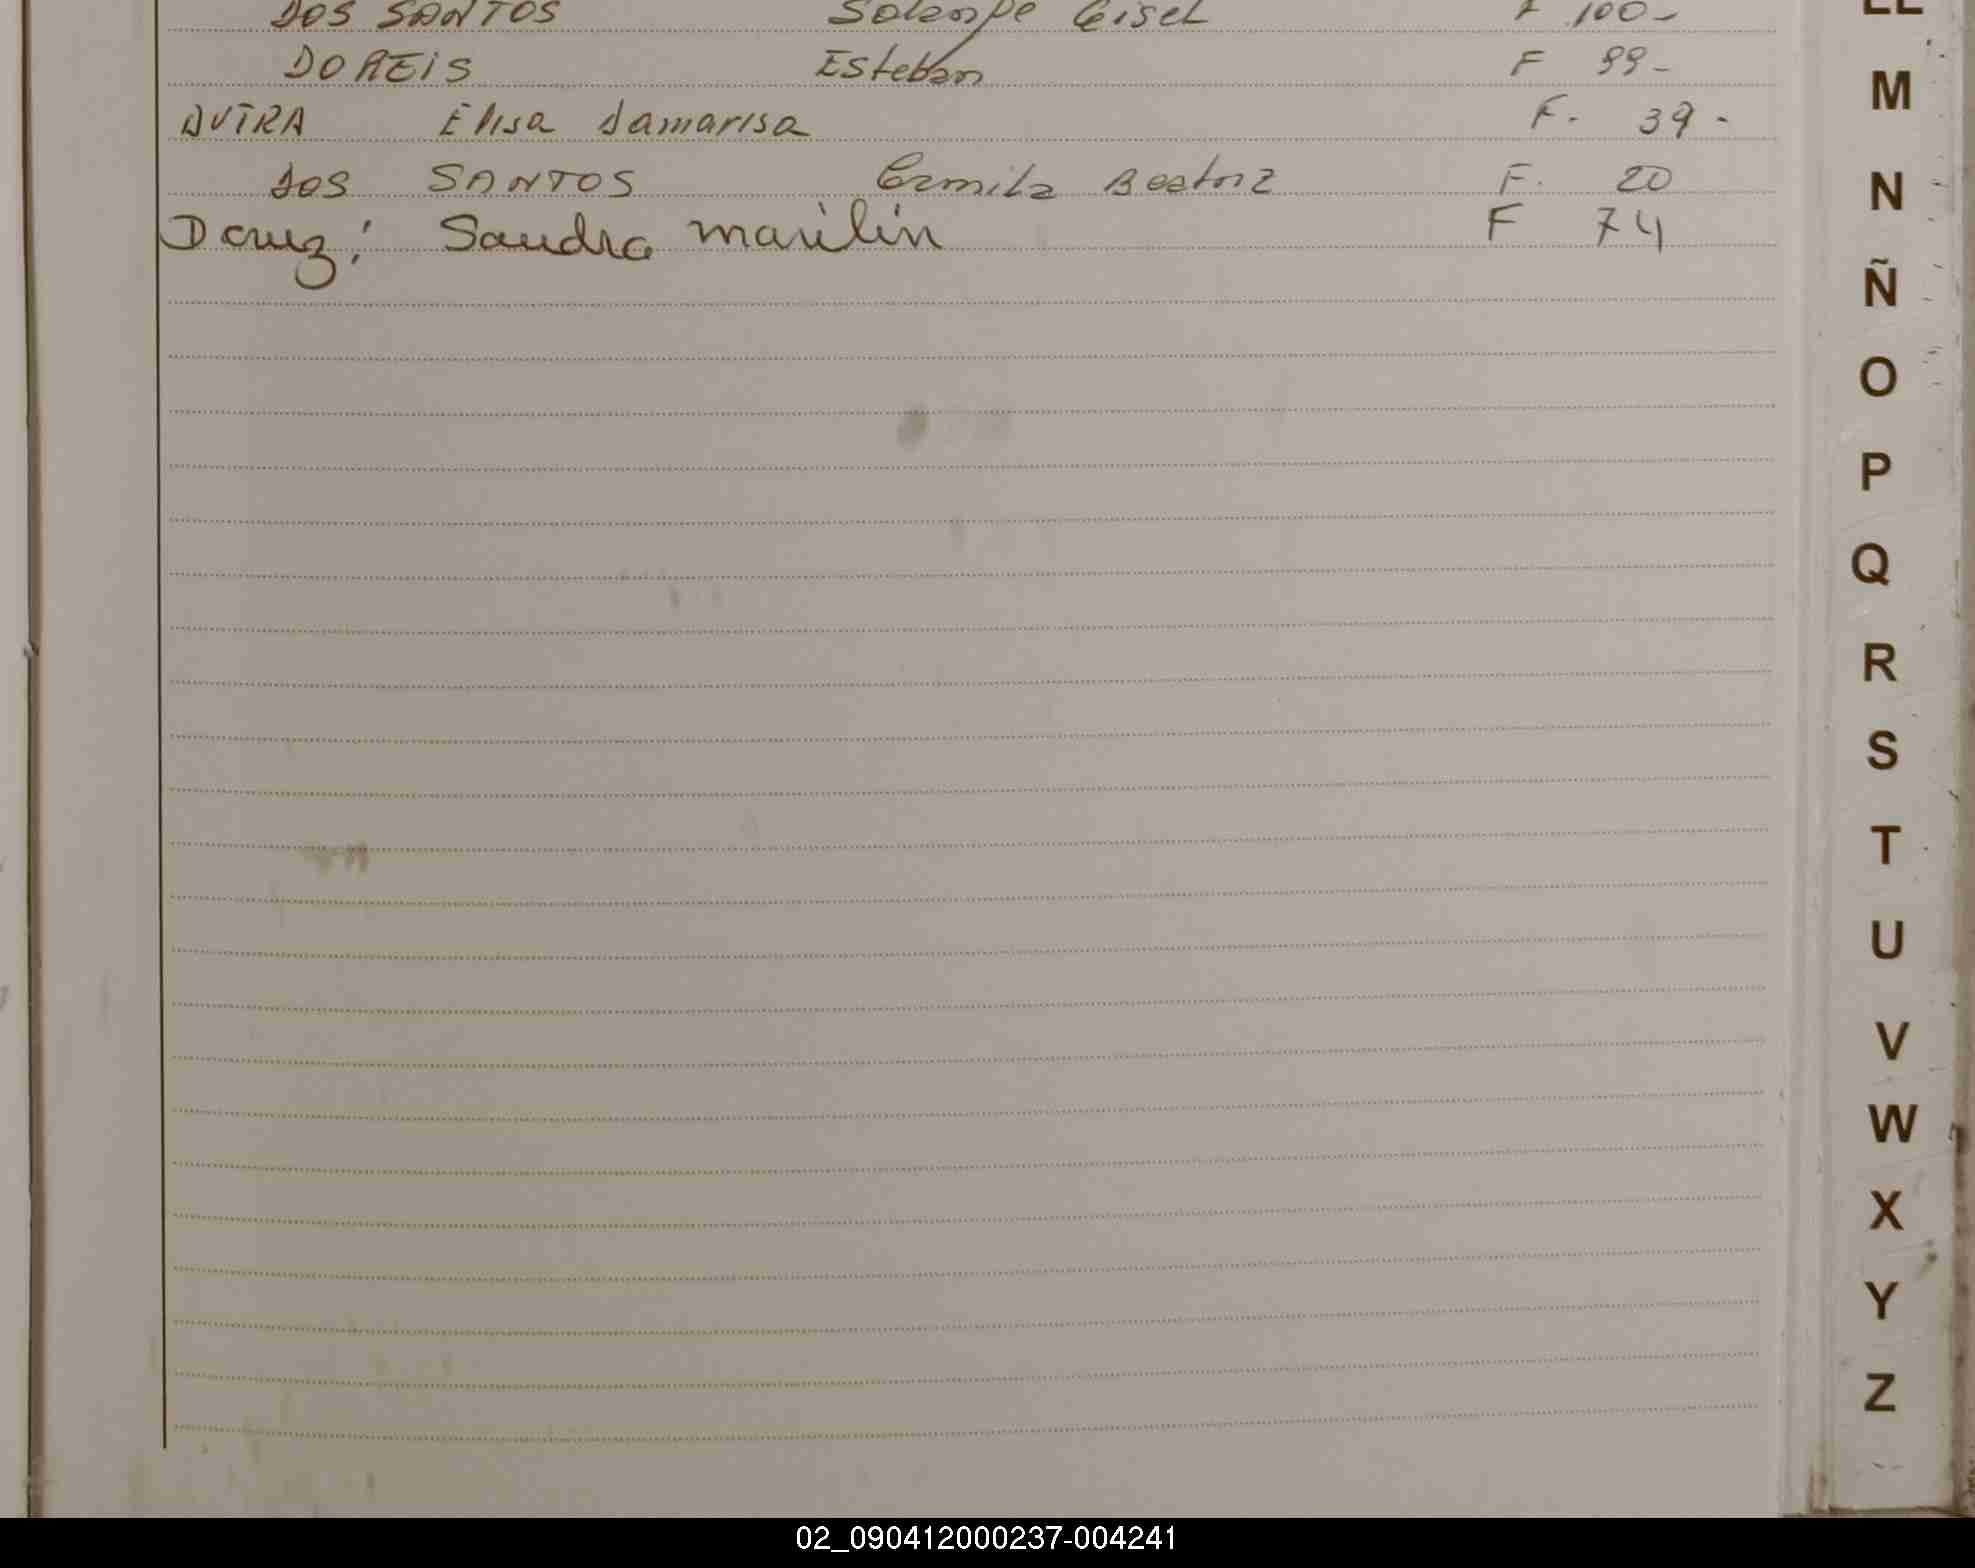 DOS SANTOS Solange Gisel F 100-
DO REIS Esteban F 99-
DUTRA Elisa Damarisa F. 39-
DOS SANTOS Camila Beatriz F. 20
Dcruz; Sandra marilin F 74
LL
M
N
Ñ
O
P
Q
R
S
T
U
V
W
X
Y
Z
02_090412000237-004241